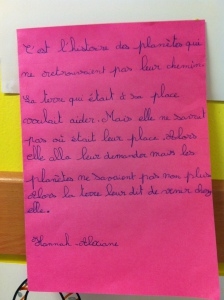 C'est l'histoire des planètes qui
ne retrouvaient pas leur chemin.
La terre qui était à sa place
voulait aider. Mais elle ne savait
pas où était leur place. Alors
elle alla leur demander mais les
planètes ne savaient pas non plus
Alors la terre leur dit de venir chez
elle.
Hannah